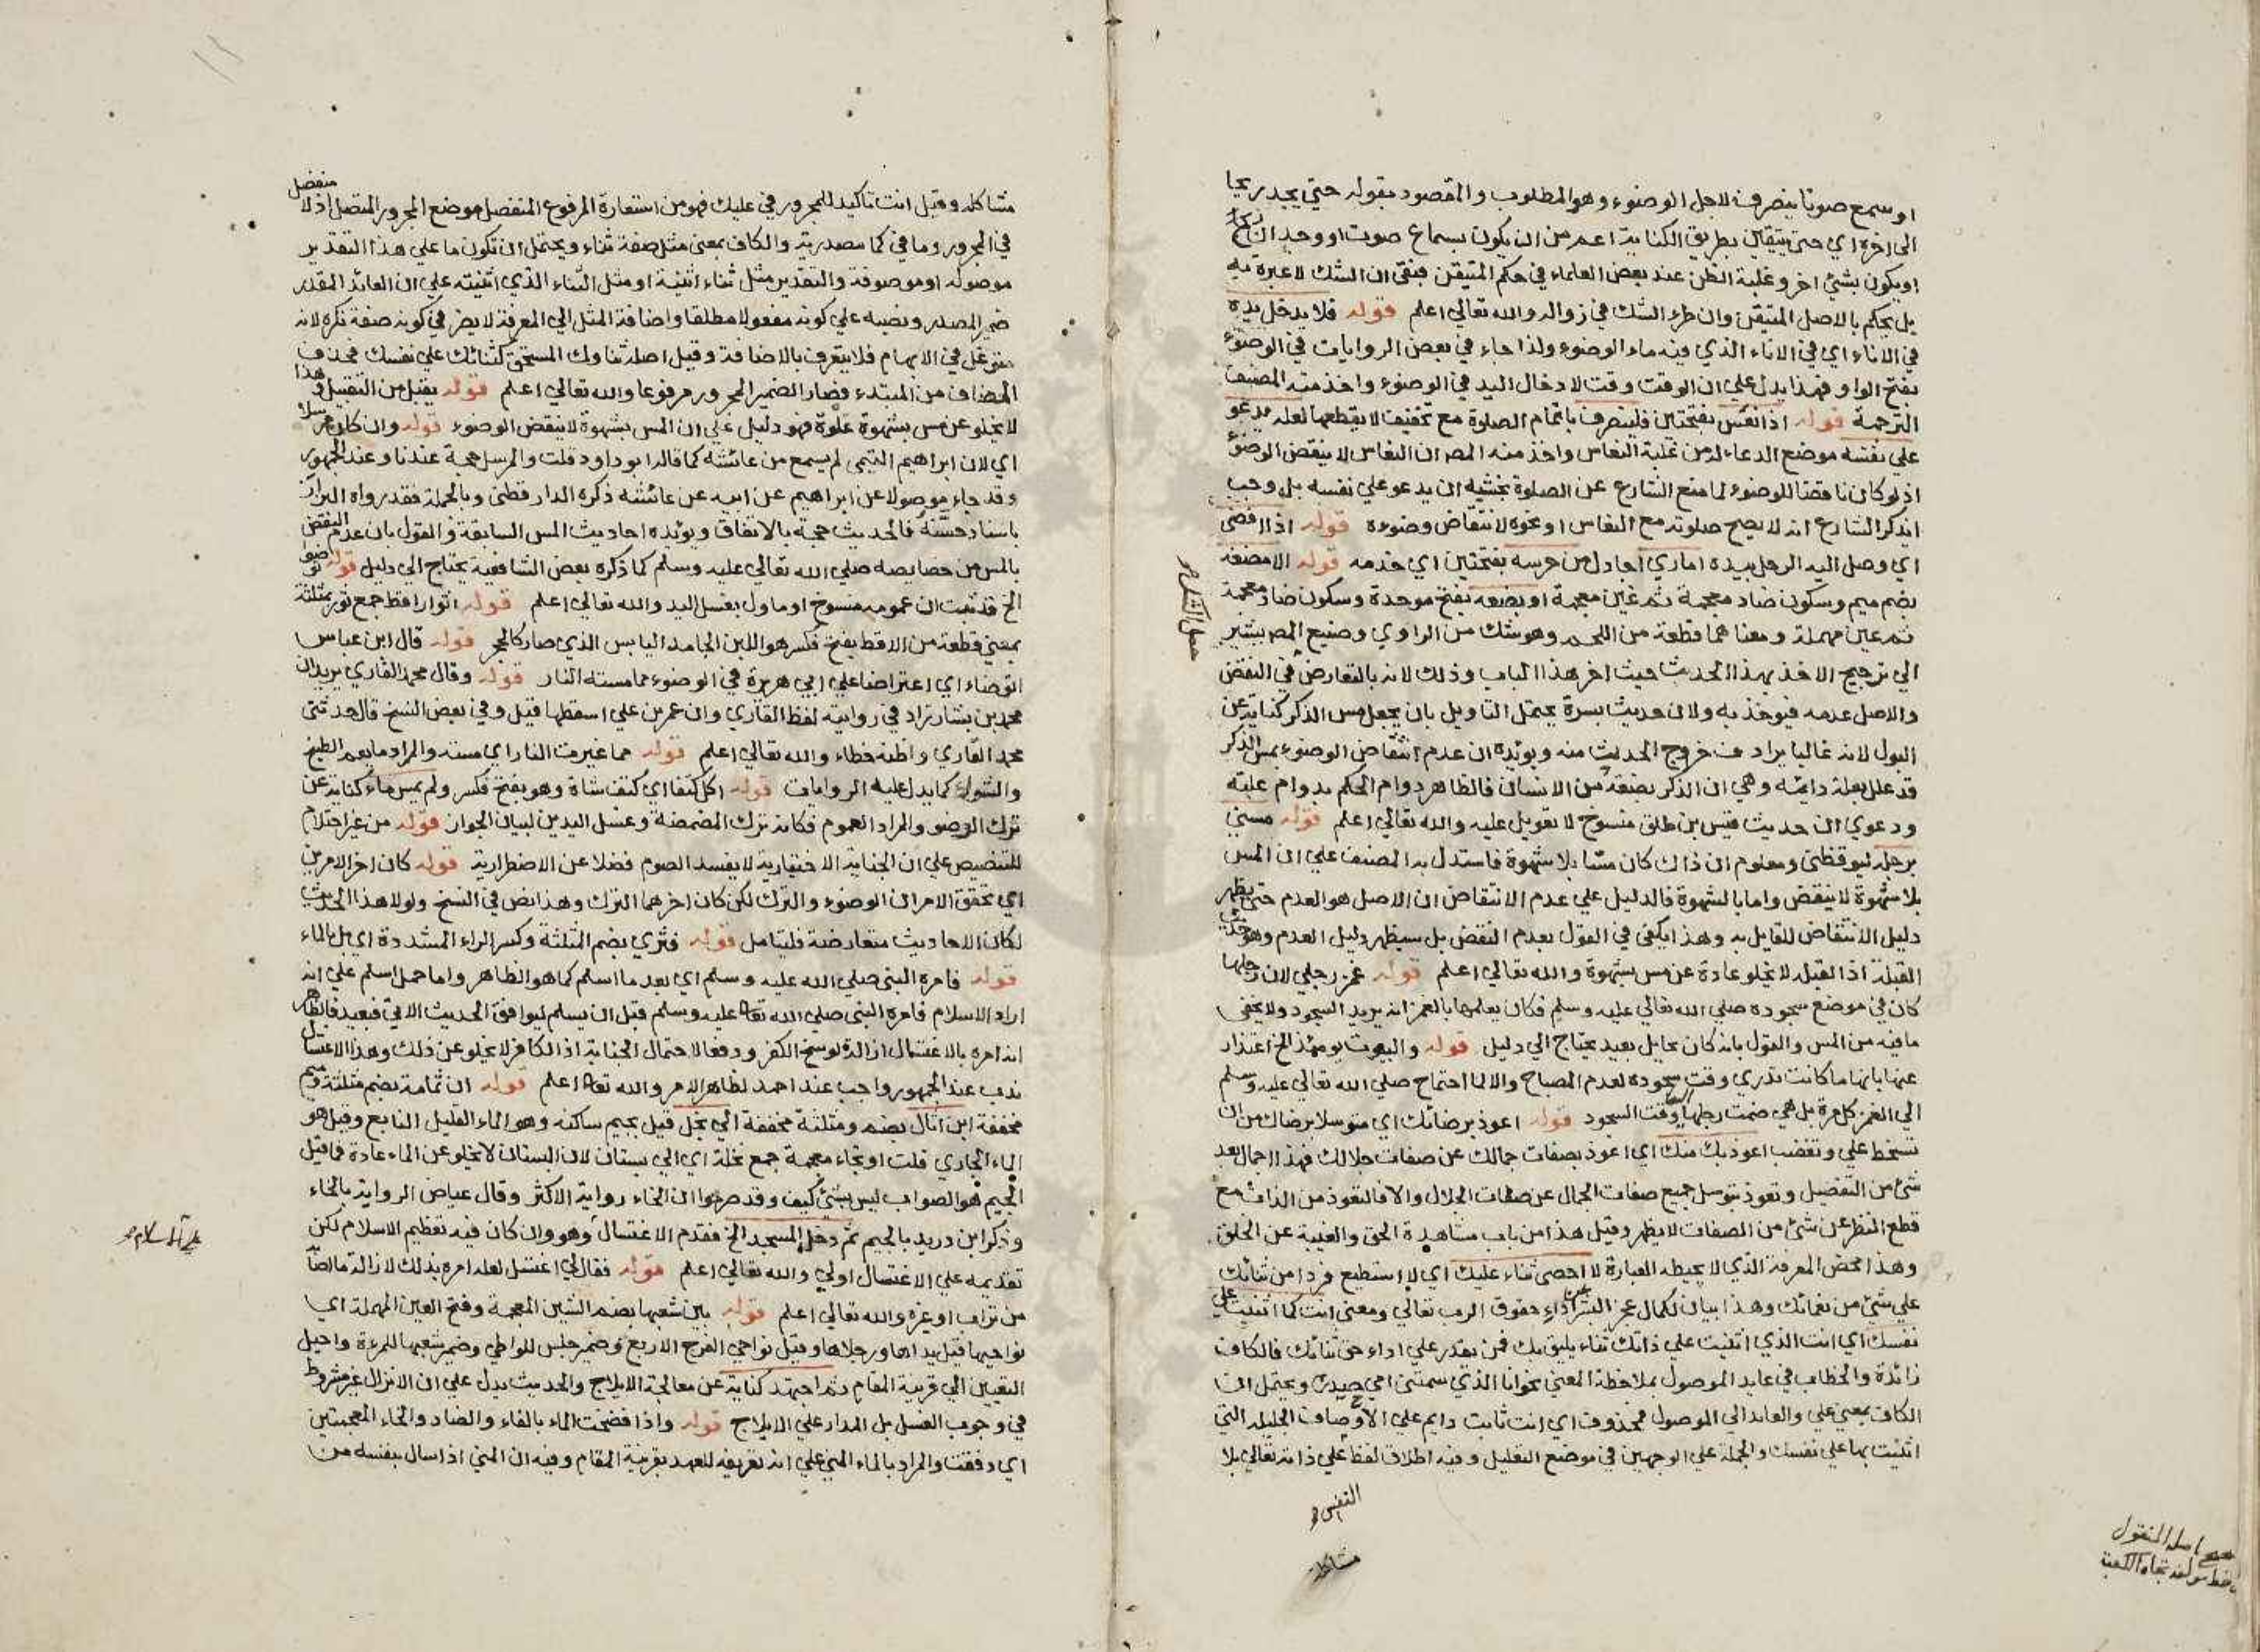 او سمع صوتا ينصرف لاجل الوضوء وهو المطلوب والمقصود بقوله حتى يجد ريحا
الى اخره اي حتى يتيقن بطريق الكناية اعم من ان يكون بسماع صوت او وجدان ريح
او يكون بشئ اخر وغلبة الظن عند بعض العلماء في حكم المتيقن فبقى ان الشك لا عبرة به
بل يحكم بالاصل المتيقن وان طرء الشك في زواله والله تعالي اعلم قوله فلا يدخل يده
في الاناء اي في الاناء الذي فيه ماء الوضوء ولذا جاء في بعض الروايات في الوضوء
بفتح الواو فهذا يدل علي ان الوقت وقت لادخال اليد في الوضوء واخذ منه المصنف
الترجمة قوله اذا نعس بفتحتين فلينصرف باتمام الصلوة مع تخفيف لا يقطعها لعله يدعو
علي نفسه موضع الدعاء لها من غلبة النعاس واخذ منه المص ان النعاس لا ينقض الوضوء
اذ لو كان ناقضا للوضوء لما منع الشارع عن الصلوة بخشية ان يدعو علي نفسه بل وجب
ان يذكر الشارع انه لا يصح صلوته مع النعاس او نحوه لانتقاض وضوءه قوله اذا افضى
اي وصل اليه الرجل بيده اماري اجادل من حرسه بفتحتين اي خدمه قوله الا مضغة
بضم ميم وسكون ضاد معجمة ثم غين معجمة او بضعة بفتح موحدة وسكون ضاد معجمة
ثم عين مهملة ومعناهما قطعة من اللحم وهو شك من الراوي وصنيع المص يشير
الي ترجيح الاخذ بهذا الحديث حيث اخر هذا الباب وذلك لانه بالتعارض في النقض
والاصل عدمه فيؤخذ به ولان حديث بسرة يحتمل التاويل بان يجعل مس الذكر كناية عن
البول لانه غالبا يرادف خروج الحديث منه ويؤيده ان عدم انتقاض الوضوء بمس الذكر
قد علل بعلة دائمة وهي ان الذكر بضعة من الانسان فالظاهر دوام الحكم بدوام علته
ودعوي ان حديث قيس بن طلق منسوخ لا تعويل عليه والله تعالي اعلم قوله مسني
برجله ليوقظني ومعلوم ان ذاك كان مسا بلا شهوة فاستدل به المصنف علي ان المس
بلا شهوة لا ينقض واما بالشهوة فالدليل علي عدم الانتقاض ان الاصل هو العدم حتى يظهر
دليل الانتقاض للقايل به وهذا يكفي في القول بعدم النقض بل سيظهر دليل العدم وهو حديث
القبلة اذ القبلة لا تخلو عادة عن مس بشهوة والله تعالي اعلم قوله غمز رجلي لان رجلها
كان في موضع سجوده صلي الله تعالي عليه وسلم فكان يعلمها بالغمز انه يريد السجود ولا يخفى
ما فيه من المس والقول بانه كان بحايل بعيد يحتاج الي دليل قوله والبيوت يومئذ الخ اعتذار
عنها بانها ما كانت تدري وقت سجوده لعدم المصباح والا لما احتاج صلي الله تعالي عليه وسلم
الي الغمز كل مرة بل هي ضمت رجلها وقت السجود قوله اعوذ برضائك اي متوسلا برضاك من ان
تسخط علي وتغضب اعوذ بك منك اي اعوذ بصفات جمالك عن صفات جلالك فهذا اجمال بعد
شئ من التفصيل وتعوذ بتوسل جميع صفات الجمال عن صفات الجلال والا فالتعوذ من الذات مع
قطع النظر عن شئ من الصفات لا يظهر وقيل هذا من باب مشاهدة الحق والغيبة عن الخلق
وهذا محض المعرفة الذي لا يحيطه العبارة لا احصى ثناء عليك اي لا استطيع فردا من ثنائك
علي شئ من نعمائك وهذا بيان لكمال عجز البشر عن اداء حقوق الرب تعالي ومعنى انت كما اثنيت علي
نفسك اي انت الذي اثنيت علي ذاتك ثناء يليق بك فمن يقدر علي اداء حق ثنائك فالكاف
زائدة والخطاب في عايد الموصول بملاحظة المعنى نحو انا الذي سمتني امي حيدرة ويحتمل ان
الكاف بمعنى علي والعايد الي الموصول محذوف اي انت ثابت دايم علي الاوصاف الجليلة التي
اثنيت بها علي نفسك والجملة علي الوجهين في موضع التعليل وفيه اطلاق لفظ علي ذاته تعالي بلا
النفس
مشاكلة
اصله المنقول
تجاه الكعبة
مشاكلة وقيل انت تاكيد للمجرور في عليك فهو من استعارة المرفوع المنفصل موضع المجرور المتصل اذ لا منفصل
في المجرور وما في كما مصدرية والكاف بمعنى مثل صفة ثناء ويحتمل ان تكون ما علي هذا التقدير
موصولة او موصوفة والتقدير مثل ثناء اثنيته او مثل الثناء الذي اثنيته علي ان العائد المقدر
ضمير المصدر ونصبه علي كونه مفعولا مطلقا واضافة المثل الي المعرفة لا يضر في كونه صفة نكرة لانه
متوغل في الابهام فلا يتعرف بالاضافة وقيل اصله ثناؤك المستحق كثنائك علي نفسك فحذف
المضاف من المبتدء فصار الضمير المجرور مرفوعا والله تعالي اعلم قوله يقبل من التقبيل وهذا
لا يخلو عن مس بشهوة عادة فهو دليل علي ان المس بشهوة لا ينقض الوضوء قوله وان كان مرسلا
اي لان ابراهيم التيمي لم يسمع من عائشة كما قاله ابو داود قلت والمرسل حجة عندنا وعند الجمهور
وقد جاء موصولا عن ابراهيم عن ابيه عن عائشة ذكره الدارقطني وبالجملة فقد رواه البزار
باسناد حسنة فالحديث حجة بالاتفاق ويؤيده احاديث المس السابقة فالقول بان عدم النقض
بالمس من خصايصه صلي الله تعالي عليه وسلم كما ذكره بعض الشافعية يحتاج الي دليل قوله توضوا
الخ قد ثبت ان عمومه منسوخ او ماول بغسل اليد والله تعالي اعلم قوله اثوار اقط جمع ثور بمثلثة
بمعنى قطعة من الاقط بفتح فكسر هو اللبن الجامد اليابس الذي صار كالحجر قوله قال ابن عباس
اتوضاء اي اعتراضا علي ابي هريرة في الوضوء مما مسته النار قوله وقال محمد القاري يريد ان
محمد بن بشار زاد في روايته لفظ القاري وان عمر بن علي اسقطها قيل وفي بعض النسخ قال حدثنى
محمد القاري واظنه خطاء والله تعالي اعلم قوله مما غيرت النار اي مسته والمراد ما يعم الطبخ
والشواء كما يدل عليه الروايات قوله اكل كتفا اي كتف شاة وهو بفتح فكسر ولم يمس ماء كناية عن
ترك الوضو والمراد العموم فكانه ترك المضمضة وغسل اليدين لبيان الجواز قوله من غير احتلام
للتنصيص علي ان الجنابة الاختيارية لا يفسد الصوم فضلا عن الاضطرارية قوله كان اخر الامرين
اي تحقق الامران الوضوء والترك لكن كان اخرهما الترك وهذا نص في النسخ ولولا هذا الحديث
لكان الاحاديث متعارضة فليتامل قوله فثري بضم المثلثة وكسر الراء المشددة اي بل بالماء
قوله فامره النبى صلي الله عليه وسلم اي بعد ما اسلم كما هو الظاهر واما حمل اسلم علي انه
اراد الاسلام فامره النبى صلي الله تعا عليه وسلم قبل ان يسلم ليوافق الحديث الاتي فبعيد فالظاهر
انه امره بالاغتسال ازالة لوسخ الكفر ودفعا لاحتمال الجنابة اذ الكافر لا يخلو عن ذلك وهذا الاغتسال
ندب عند الجمهور واجب عند احمد لظاهر الامر والله تعا اعلم قوله ان ثمامة بضم مثلثة وميم
مخففة ابن اثال بضم ومثلثة مخففة الي نجل قيل بجيم ساكنة وهو الماء القليل النابع وقيل هو
الماء الجاري قلت او بخاء معجمة جمع نخلة اي الي بستان لان البستان لا يخلو عن الماء عادة فما قيل
الجيم هو الصواب ليس بشئ كيف وقد صرحوا ان الخاء رواية الاكثر وقال عياض الرواية بالخاء
وذكر ابن دريد بالجيم ثم دخل المسجد الخ فقدم الاغتسال وهو وان كان فيه تعظيم الاسلام لكن
تقديمه علي الاغتسال اولي والله تعالي اعلم قوله فقال لي اغتسل لعله امره بذلك لازالة ما اصابه
من تراب او غيره والله تعالي اعلم قوله بين شعبها بضم الشين المعجمة وفتح العين المهملة اي
نواحيها قيل يداها ورجلاها وقيل نواحي الفرج الاربع وضمير جلس للواطي وضمير شعبها للمرءة واحيل
التعيين الي قرينة المقام ثم اجتهد كناية عن معالجة الايلاج والحديث يدل علي ان الانزال غير مشروط
في وجوب الغسل بل المدار علي الايلاج قوله واذا فضخت الماء بالفاء والضاد والخاء المعجمتين
اي دفقت والمراد بالماء المني علي انه تعريفه للعهد بقرينة المقام وفيه ان المني اذا سال بنفسه من